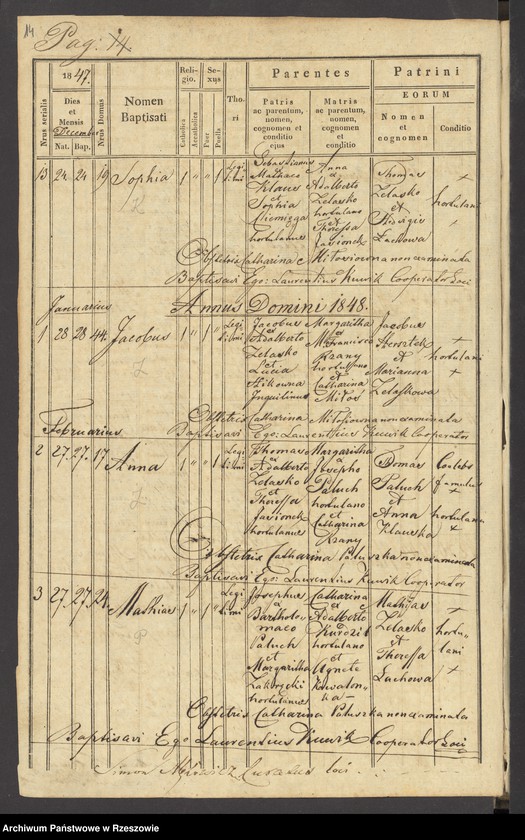 14
Pag: 14.
1847.
Religio.
Sexus
Parentes
Patrini
Nrus serialis
Dies et Mensis
December
Nat. Bap.
Nrus Domus
Nomen Baptisati
Catholica
Acatholica
Puer
Puella
Thori
Patris ac parentum, nomen, cognomen et conditio ejus
Matris ac parentum, nomen, cognomen et conditio
EORUM
Nomen et cognomen
Conditio
13 24 24 19 Sophia 1 " " 1 Legitimi
Sebastianus
Mathaeo
Klaus
et
Sophia
Niemięga
hortulanus
Anna
a
Adalberto
Zelasko
hortulano
et
Theressa
Jasionek
Thomas
Zelasko
et
Hedvigis
Luchowa
+
hortulani
Obstetrix Catharina Miłosiowna non examinata
Baptisavi Ego: Laurentius Kuwik Cooperator Loci
Januarius Annus Domini 1848.
1 28 28 44. Jacobus 1 " 1 " Legitimi
Jacobus
ex
Adalberto
Zelasko
et
Lucia
Inquilinus
Margaritha
Francisco
Krany
hortulano
et
Catharina
Miłoś
Jacobus
et
Marianna
Zelaskowa
+
hortulani
+
Obstetrix Catharina Miłosiowna non examinata
Februarius Baptisavi Ego: Laurentsius Kuwik Cooperator
2 27. 27. 17 Anna 1 " " 1 Legitimi
Thomas
ex
Adalberto
Zelasko
et
Theressa
Jasionek
hortulanus
Margaritha
ex
Josepho
Paluch
hortulano
et
Catharina
Krany
Tomas
Paluch
et
Anna
Klauska
Coelebs
famulus
+
hortulana
+
Obstetrix Catharina Paluszka non examinata
Baptisavi Ego: Laurentius Kuwik Cooperator
3 27. 27. 24. Mathias 1 " 1 " Legitimi
Josephus
a
Bartholomaeo
Paluch
et
Margaritha
hortulanus
Catharina
ex
Adalberto
hortulano
et
Agnete
Mathias
Zelasko
et
Theressa
Luchowa
+
hortulani
+
Obstetrix Catharina Paluszka non examinata
Baptisavi Ego Laurentius Kuwik Cooperator Loci
Simon Curatus loci
Archiwum Państwowe w Rzeszowie